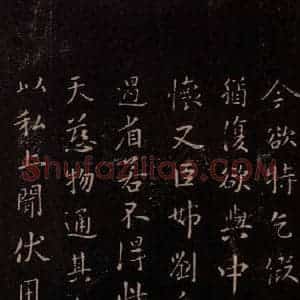 今欲特乞假
猶復欲與中
懷又臣姊劉
過省若不得
天慈物通其
以私上聞伏用
shufaziliao.com